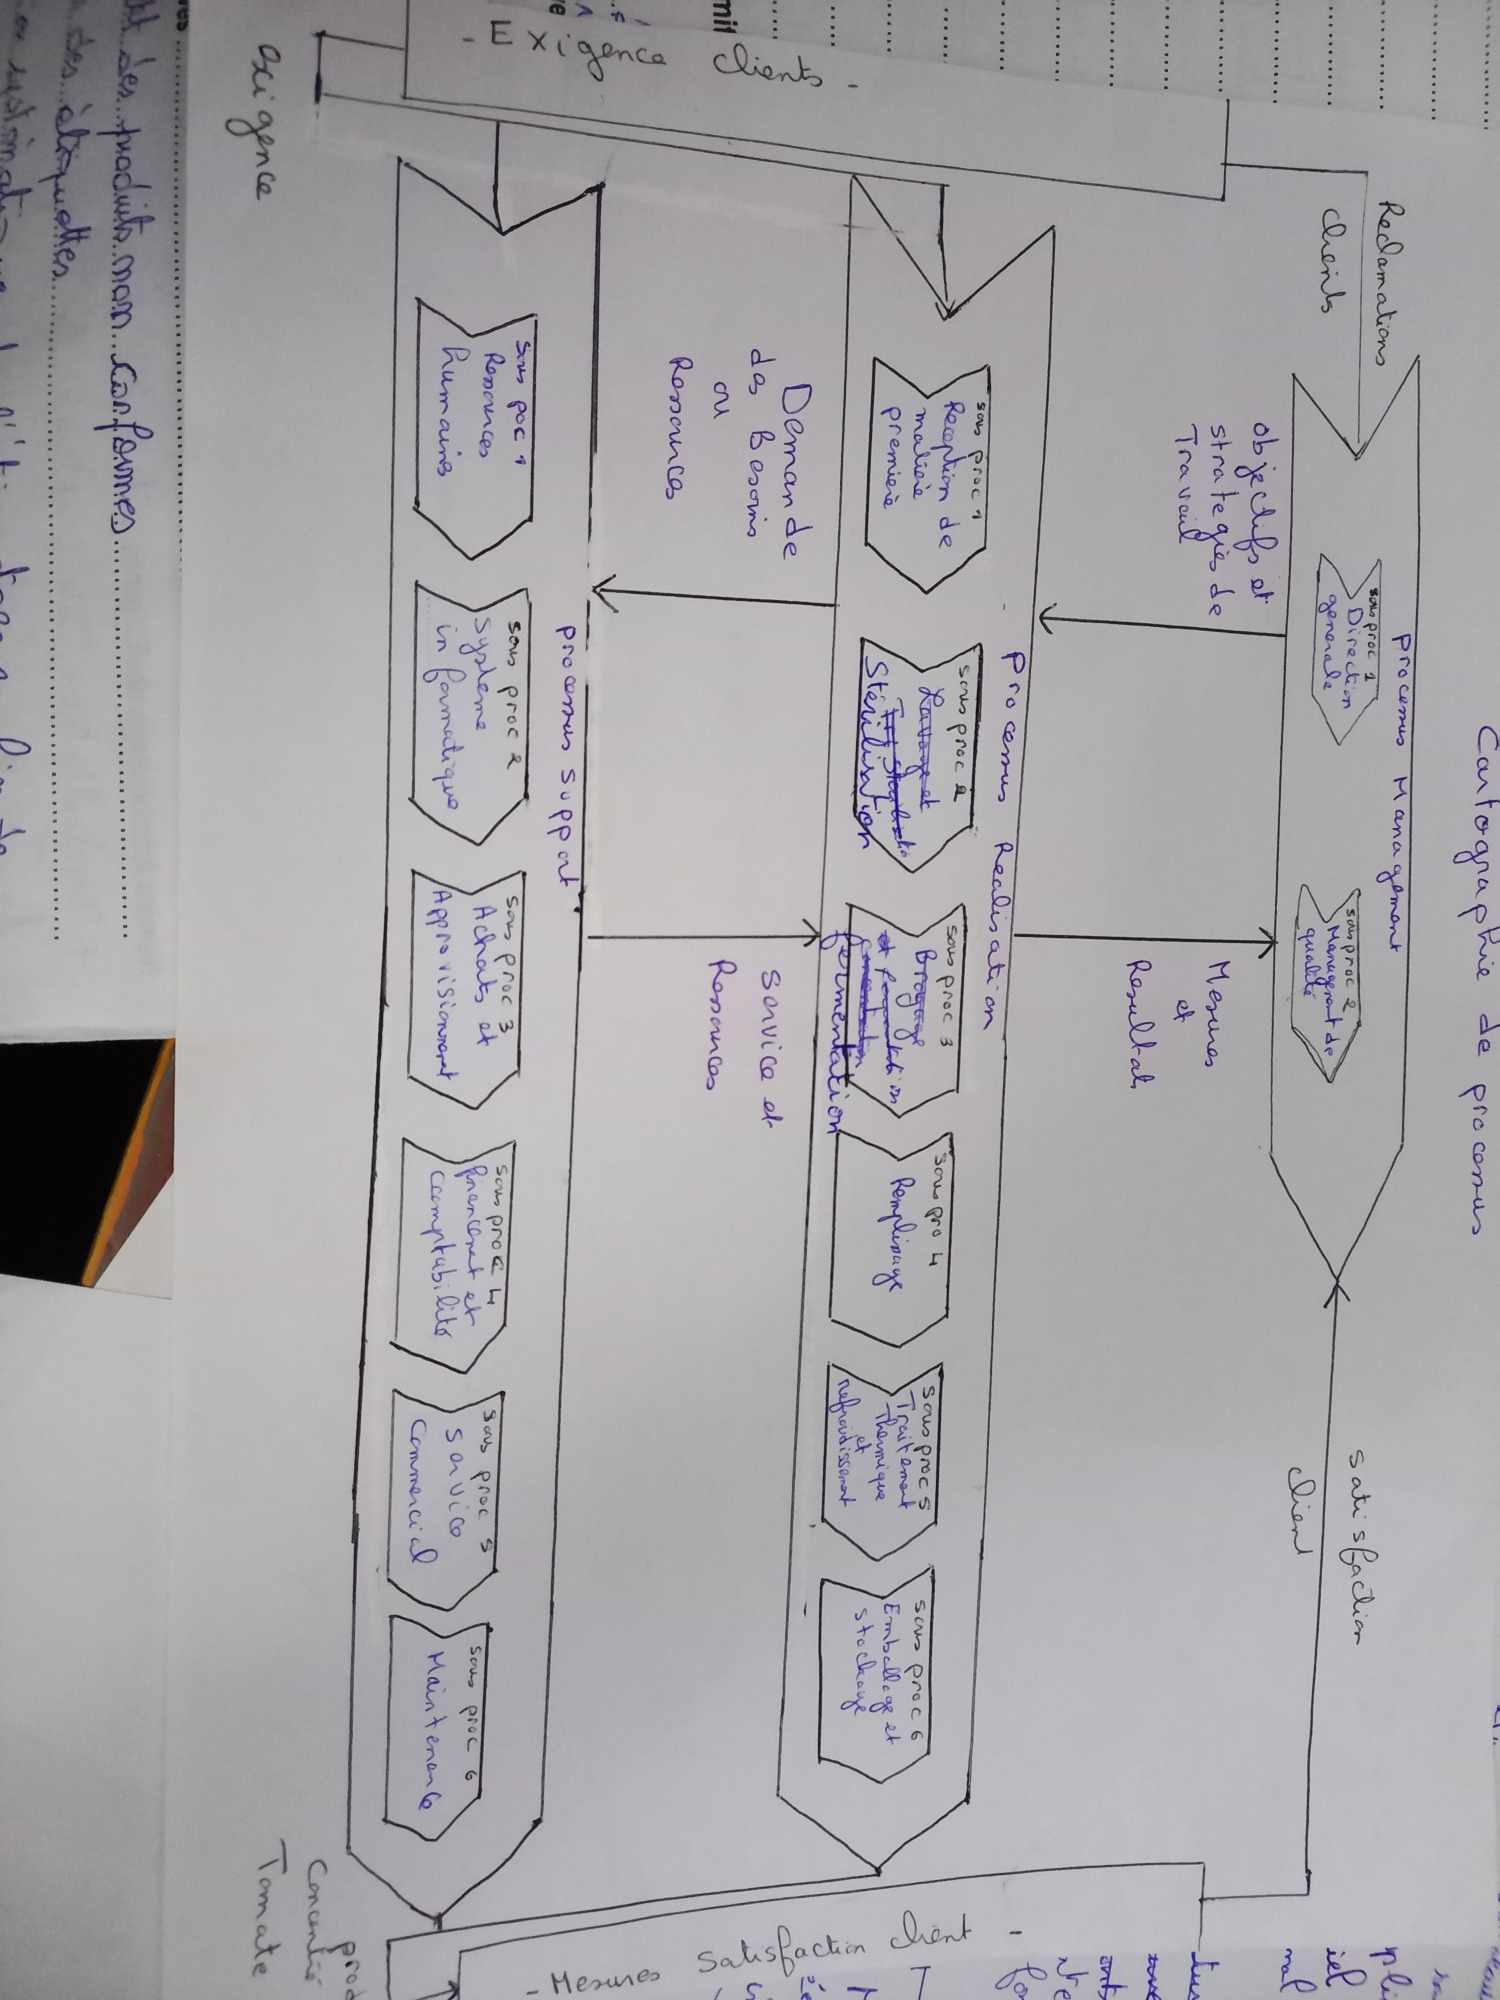 Cartographie de processus
Reclamations
clients
processus Management
sous proc 1
Direction
generale
sous proc 2
Management de
qualité
satisfaction
client
objectifs et
strategies de
Travail
Mesures
et
Resultats
processus Realisation
sous proc 1
Reception de
matiere
premiere
sous proc 2
Lavage et
Stérilisation
sous proc 3
Broyage
fermentation
sous pro 4
Remplissage
sous proc 5
Traitement
Thermique
et
refroidissement
sous proc 6
Emballage et
stockage
Demande
des Besoins
ou
Ressources
Service et
Ressources
processus support
Sous poc 1
Ressources
humaines
sous proc 2
systeme
informatique
sous proc 3
Achats et
Approvisionnement
sous proc 4
financement et
comptabilité
sous proc 5
service
commercial
sous proc 6
Maintenance
- Exigence clients -
- Mesures Satisfaction client -
exigence
prod
Concentré
Tomate
des produits non conformes
des étiquettes